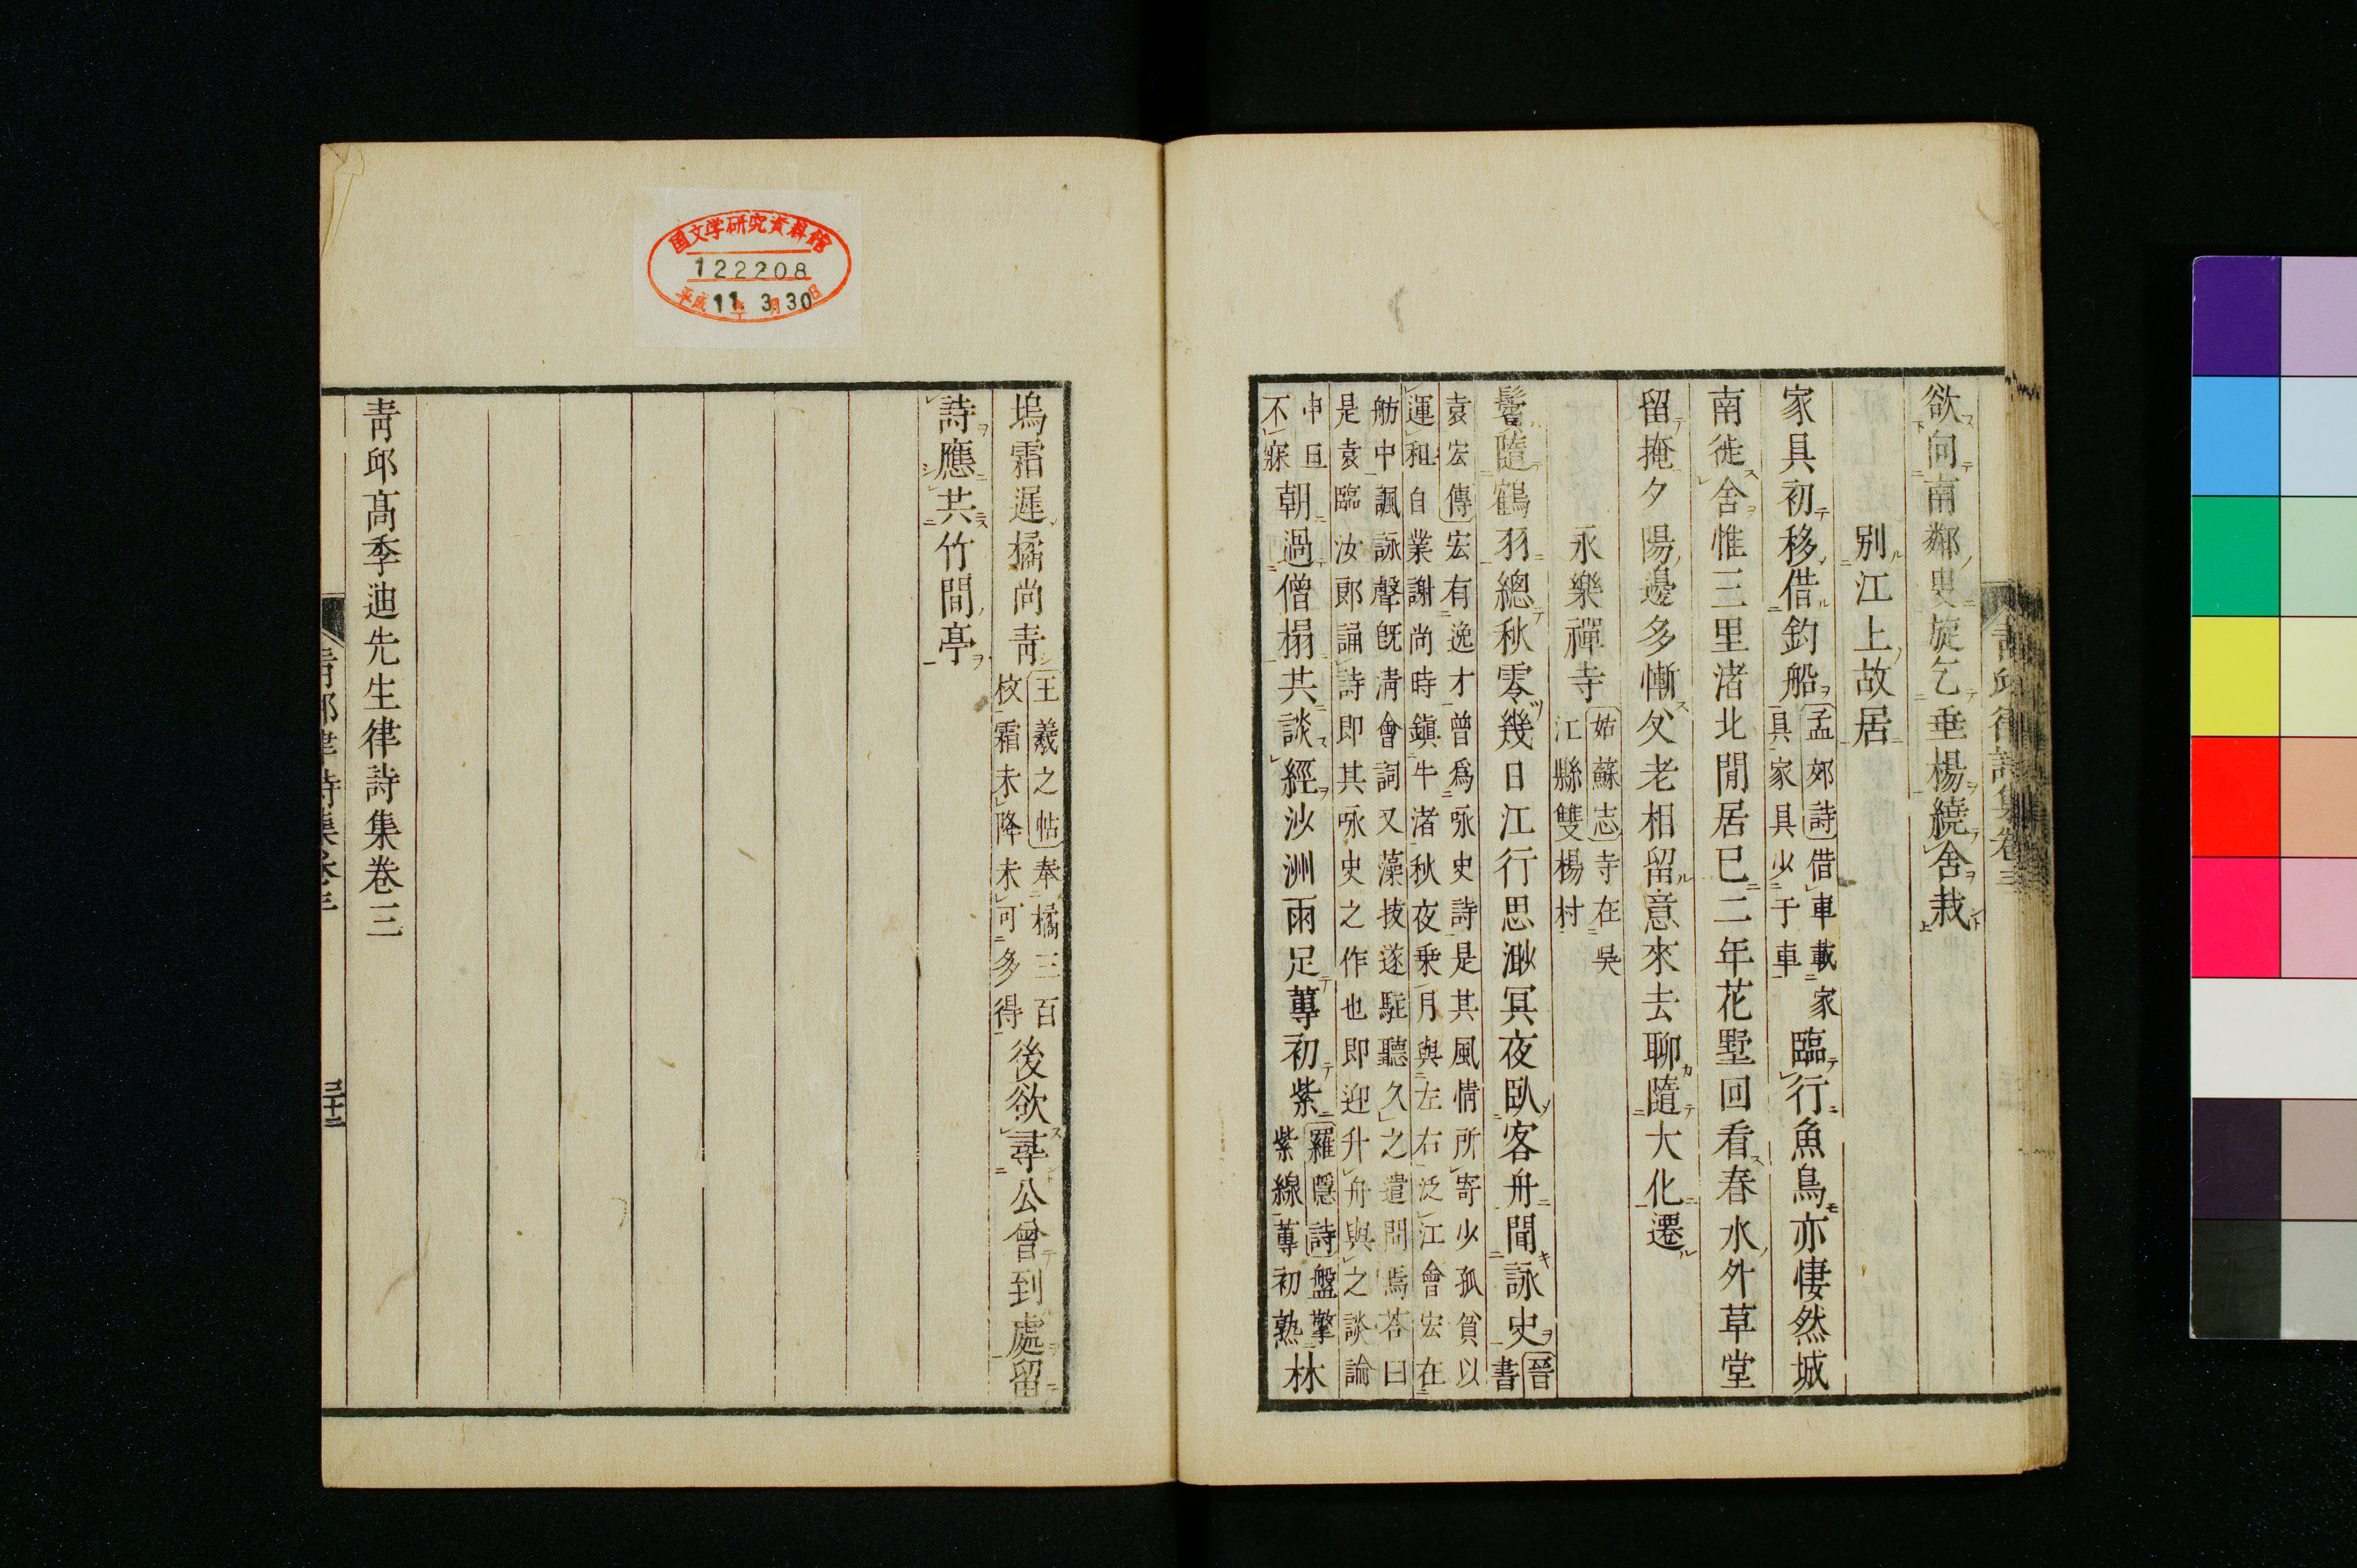 欲向南鄰叟旋乞垂楊繞舍栽
別江上故居
家具初移借釣船
孟郊詩借車載家
具家具少于車
臨行魚鳥亦悽然城
南徙舍惟三里渚北閒居已二年花墅回看春水外草堂
留掩夕陽邊多慚父老相留意來去聊隨大化遷
永樂禪寺
姑蘇志寺在吳
江縣雙楊村
鬢隨鶴羽總秋零幾日江行思渺冥夜臥客舟間詠史
晉
書
袁宏傳宏有逸才曾爲咏史詩是其風情所寄少孤貧以
運租自業謝尚時鎭牛渚秋夜乗月與左右泛江會宏在
舫中諷詠聲旣淸會詞又藻拔遂駐聽久之遣問焉荅曰
是袁臨汝郎誦詩即其咏史之作也即迎升舟與之談論
申旦
不寐
朝過僧榻共談經沙洲雨足蓴初紫
羅隱詩盤擎
紫線蓴初熟
林
塢霜遲橘尚青
王羲之帖奉橘三百
枚霜未降未可多得
後欲尋公曾到處留
詩應共竹間亭
青邱高季迪先生律詩集卷三
青邱律詩集卷三
三十二
国文学研究資料館
122208
平成11年3月30日